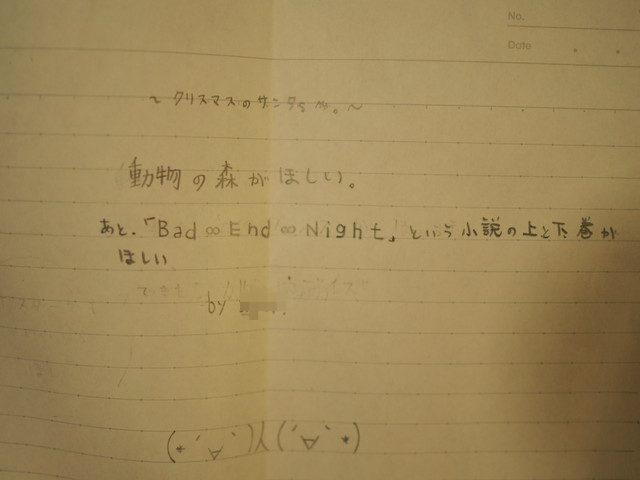 No.
Date
～クリスマスのサンタさんへ。～
動物の森がほしい。
あと、「Bad∞End∞Night」という小説の上と下巻が
ほしい
by
(*´∀`)人(´∀`*)